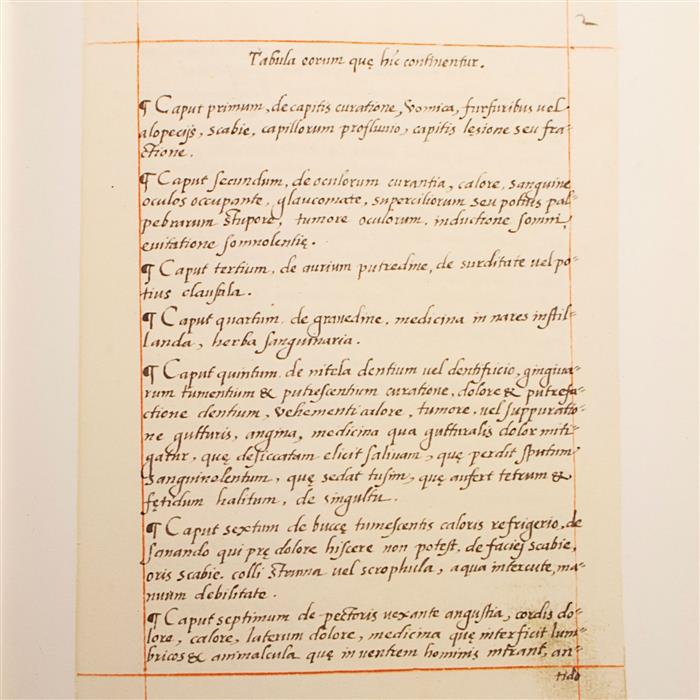 2
Tabula eorum quę hic continentur.
¶ Caput primum, de capitis curatione, vomica, furfuribus vel
alopecijs, scabie, capillorum profluuio, capitis lęsione seu fra-
ctione.
¶ Caput secundum, de oculorum curantia, calore, sanguine
oculos occupante, glaucomate, superciliorum seu potius pal-
pebrarum stupore, tumore oculorum, inductione somni,
euitatione somnolentię.
¶ Caput tertium, de aurium putredine, de surditate vel po-
tius clausula.
¶ Caput quartum, de grauedine, medicina in nares instil-
landa, herba sanguinaria.
¶ Caput quintum, de nitela dentium vel dentificio, gingiua-
rum tumentium & putrescentium curatione, dolore & putrefa-
ctione dentium, vehementi calore, tumore, vel suppuratio-
ne gutturis, angina, medicina qua gutturalis dolor miti-
gatur, quę desiccatam elicit saliuam, quę perdit sputum
sanguinolentum, quę sedat tusim, quę aufert tetrum &
fętidum halitum, de singultu.
¶ Caput sextum de buccę tumescentis caloris refrigerio, de
sanando qui prę dolore hiscere non potest, de faciei scabie,
oris scabie, colli struma vel scrophula, aqua intercute, ma-
nuum debilitate.
¶ Caput septimum de pectoris vexante angustia, cordis do-
lore, calore, laterum dolore, medicina quę interficit lum-
bricos & animalcula quę in ventrem hominis intrant, an-
tido